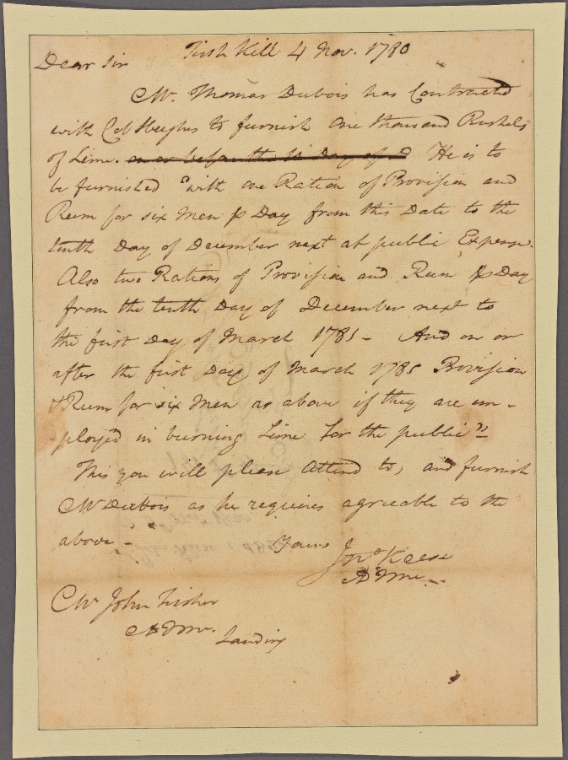 Fish Kill 4 Nov. 1780
Dear Sir
Mr. Thomas Dubois has Contracted
with Col Hughes to furnish one thousand Bushels
of Lime. on or before the 10 day of He is to
be furnished "with one Ration of Provision and
Rum for six Men ⅌ Day from this Date to the
tenth Day of December next at public Expense.
Also two Rations of Provision and Rum ⅌ Day
from the tenth Day of December next to
the first Day of March 1781 - And on or
after the first Day of March 1781 Provision
& Rum for six Men as above if they are em-
ployed in burning Lime for the public"-
This you will please Attend to, and furnish
Mr Dubois as he requires agreable to the
above -
Yours
Jno Keese
Mr John Fisher
Landing